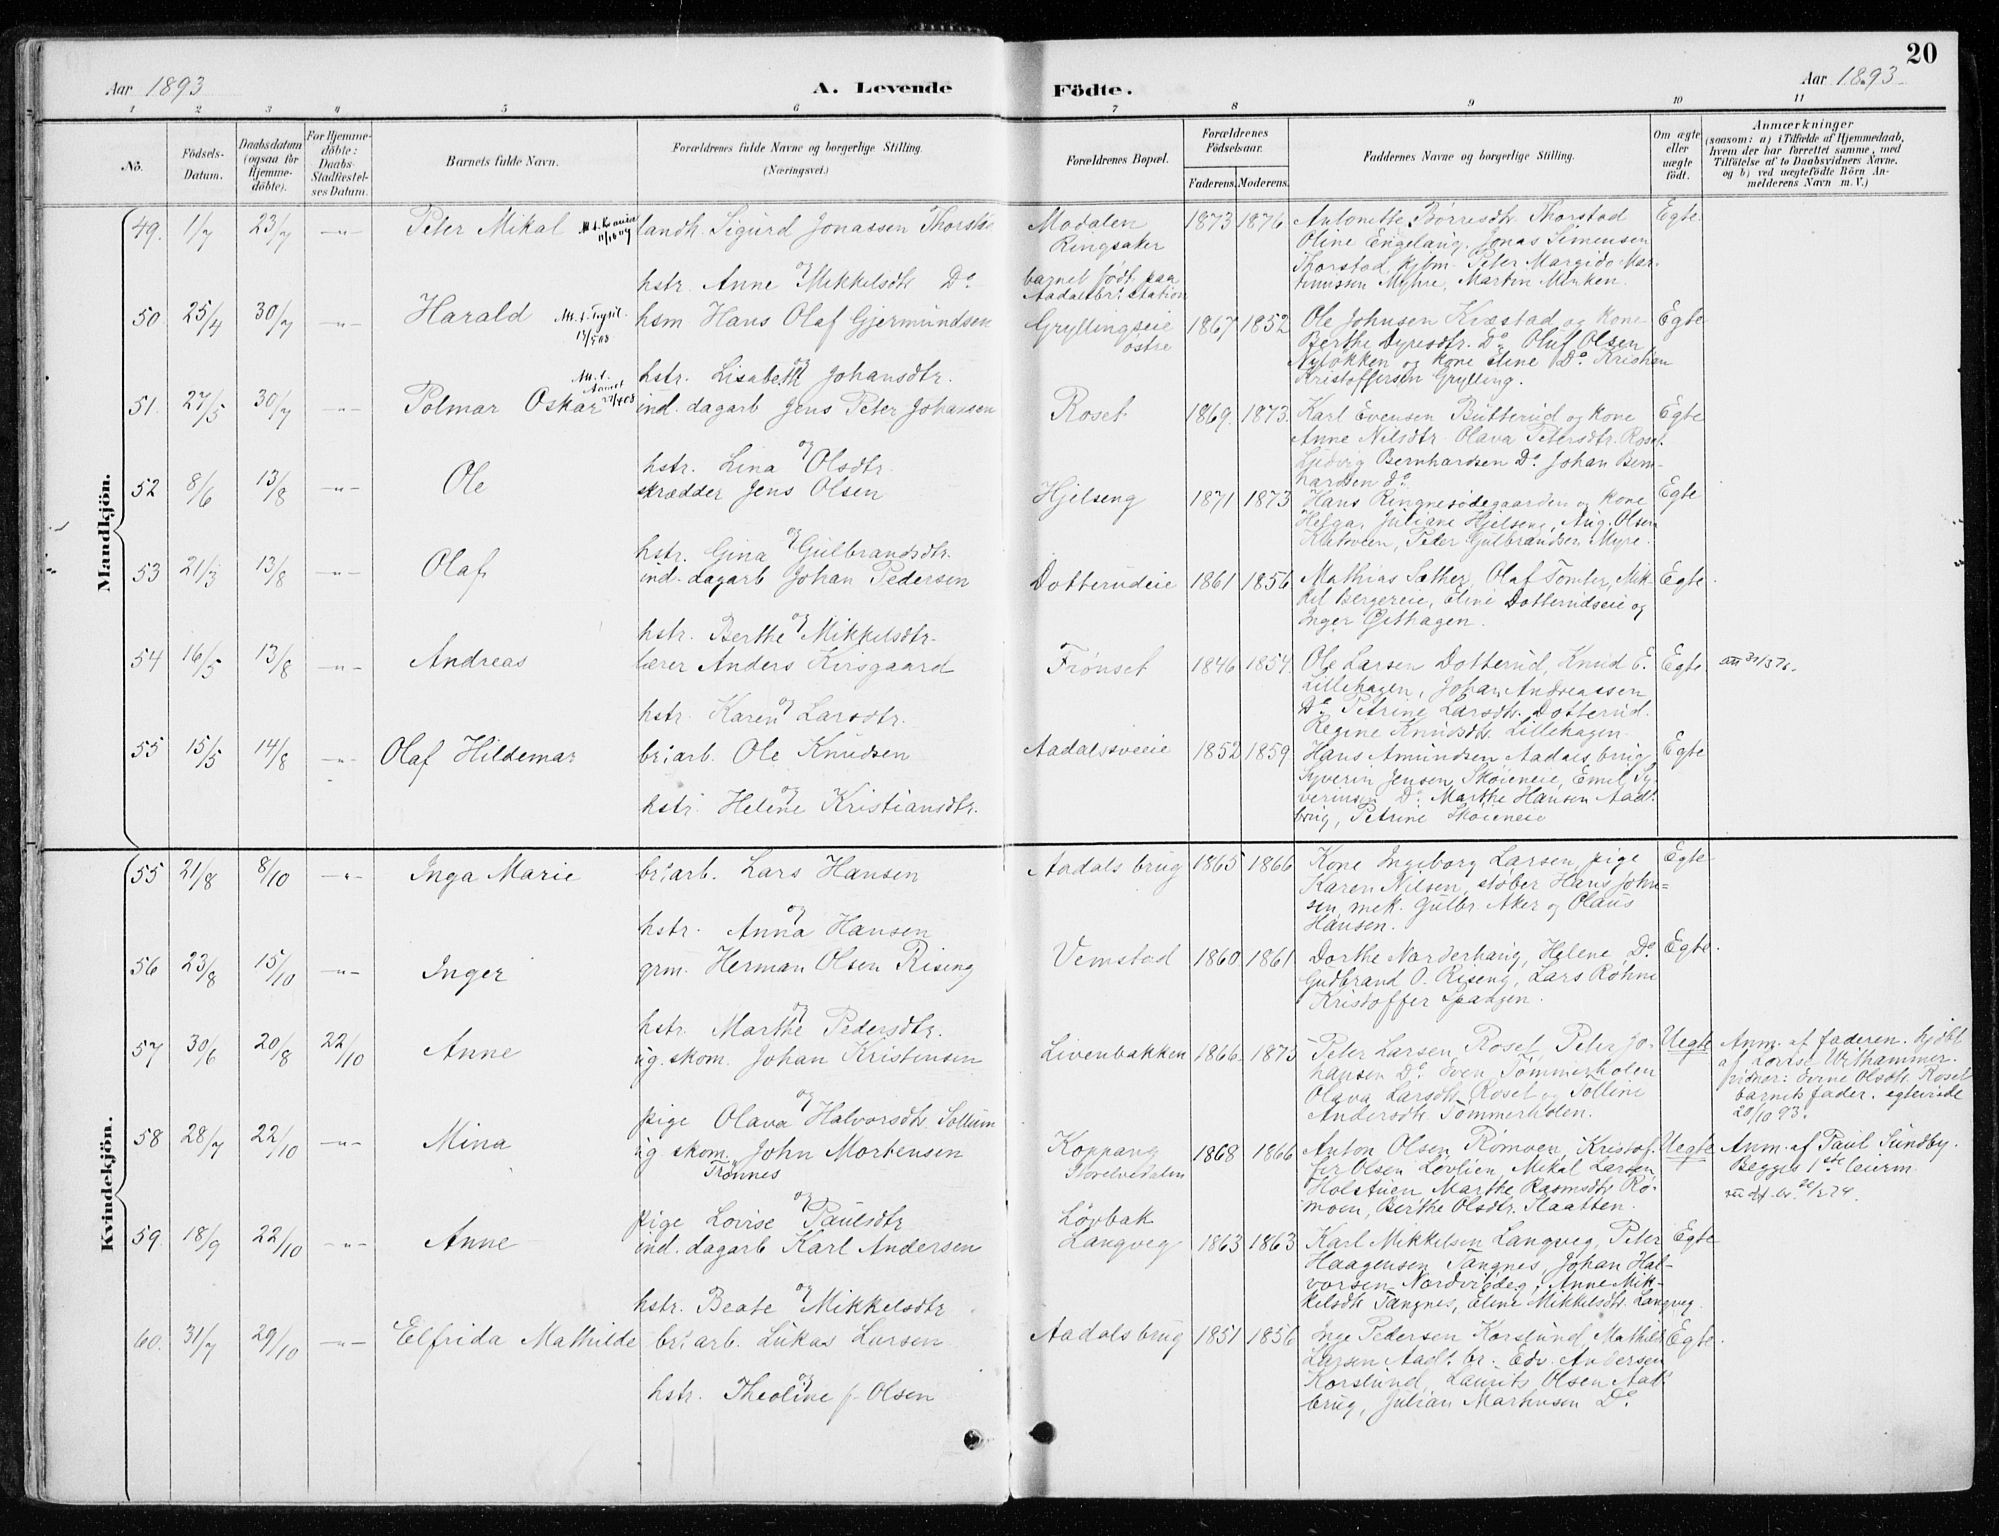 20
Aar 1893
A. Levende Födte.
Aar 1893
1 2 3 4 5 6 7 8 9 10 11
Nò.
Födsels-Datum.
Daabsdatum (ogsaa for Hjemme-döbte).
For Hjemme-döbte: Daabs-Stadfæstel-ses Datum.
Barnets fulde Navn.
Forældrenes fulde Navne og borgerlige Stilling. (Næringsvei.)
Forældrenes Bopæl.
Forældrenes Födselsaar.
Faderens. Moderens.
Faddernes Navne og borgerlige Stilling.
Om ægte eller uægte födt.
Anmærkninger
(saasom: a) i Tilfælde af Hjemmedaab,
hvem der har forrettet samme, med
Tilföielse af to Daabsvidners Navne.
og b) ved uægtefödte Börn An-
melderens Navn m. V.)
Mandkjön.
49. 1/7 23/7 -"- Peter Mikal landh. Sigurd Jonassen Thorstad
og
hstr. Anne Mikkelsdtr. Do
Modalen
Ringsaker
barnet født paa
Aadalsbr. Station
1873 1876
Antonette Børresdtr. Thorstad
Oline Engelang, Jonas Simensen
Thorstad, kjbm. Peter Margido Mar-
tinussen Myhre, Martin Minken.
Egte
50 25/4 30/7 -"- Harald hsm. Hans Olaf Gjermundsen
og
hstr. Lisabeth Johansdtr.
Gryllingseie
østre
1867 1852
Ole Johnsen Kvæstad og kone
Berthe Dyresdtr. Do, Oluf Olsen
Nyløkken og kone Eline Do Kristian
Kristoffersen Grylling.
Egte
51. 27/5 30/7 -"- Polmar Oskar ind. dagarb. Jens Peter Johansen
og
hstr. Lina Olsdtr.
Roset
1869. 1873.
Karl Evensen Butterud og kone
Anne Nilsdtr. Olava Petersdtr. Roset
Ludvig Bernhardsen Do. Johan Bern-
hardsen do.
Egte
52 8/6 13/8 -"- Ole skrædder Jens Olsen
og
hstr. Gina Gulbrandsdtr.
Hjelseng
1871 1873
Hans Ringnesødegaarden og kone
Helga, Juliane Hjelseng, Aug. Olsen
Klatoveen, Peder Gulbrandsen Myre.
Egte
53 21/3 13/8 -"- Olaf ind. dagarb. Johan Pedersen
og
hstr. Berthe Mikkelsdtr.
Dotterudeie
1861 1856
Mathias Sæther, Olaf Tomter, Mik-
kel Bergereie, Eline Dotterudseie og
Inger Gethagen.
Egte
54 16/5 13/8 -"- Andreas lærer Anders Kirsgaard
og
hstr. Karen Larsdtr.
Frønset
1846 1854.
Ole Larsen Dotterud, Knud E.
Lillehagen, Johan Andreassen
Do Petrine Larsdtr. Dotterud.
Regine Knudsdtr. Lillehagen.
Egte
55 15/5 14/8 -"- Olaf Hildemar br: arb. Ole Knudsen
og
hstr. Helene Kristiansdtr.
Aadalssveie
1852 1859
Hans Amundsen Aadals brug
Syverin Jensen, Skøieneie, Emil Sy-
verinsen Do. Marthe Hansen Aadl.
brug, Petrine Skøieneie
Egte
Kvindekjön.
55 21/8 8/10 -"- Inga Marie br: arb. Lars Hansen
og
hstr. Anna Hansen
Aadals brug
1865 1866
Kone Ingeborg Larsen, pige
Karen Nilsen, støber Hans John-
sen, mek. Gulbr. Aker og Olaus
Hansen.
Egte
56 23/8 15/10 -"- Inger grm. Herman Olsen Rising
og
hstr. Marthe Pedersdtr.
Vemstad
1860 1861
Dorthe Norderhaug, Helene Do.
Gudbrand O. Riseng, Lars Røhne
Kristoffer Spaagen.
Egte.
57 30/6 20/8 22/10 Anne ug. skom. Johan Kristensen
og
pige Olava Halvorsdtr. Sollum
Livenbakken
1866. 1873
Peter Larsen Roset, Peter Jo-
hansen Do. Sven Tømmerholen
Olava Larsdtr. Roset ogOlline
Andersdtr. Tømmerholen.
Uegte
Anm. af faderen. hjdbt.
af Lovise Withammer.
vidner: Evine Olsdtr. Roset
barnets fader. egteviede
20/10 93.
58 28/7 22/10 -"- Mina ug. skom. John Mortensen
Trønnes
og
pige Lovise Paulsdtr
Koppang
Storelvedalen
Løvbak
1868 1866
Anton Olsen Rømoen, Kristof-
fer Olsen Løvlien, Mikal Larsen
Holstuen, Marthe Rasmsdtr. Rø-
moen, Berthe Olsdtr. Slaatten.
Uegte
Anm. af Paul Sundby.
Begges 1ste leierm.
59. 18/9 22/10 -"- Anne ind. dagarb. Karl Andersen
og
hstr. Beate Mikkelsdtr
Langveg
1863 1863
Karl Mikkelsen Langveg, Peter
Haagensen Tangnes, Johan Hal-
vorsen Nordvigdeg, Anne Mik-
kelsdtr. Tangnes, Eline Mikkelsdtr. Langveg.
Egte
60. 31/7 29/10 -"- Elfrida Mathilde br: arb. Lukas Larsen
og
hstr. Theoline f. Olsen
Aadals brug
1851 1856
Inge Pedersen Korslund, Mathilde
Larsen Aadl. br. Edv. Andersen
Korslund, Laurits Olsen Aadl.
brug, Julian Martinsen Do.
Egte